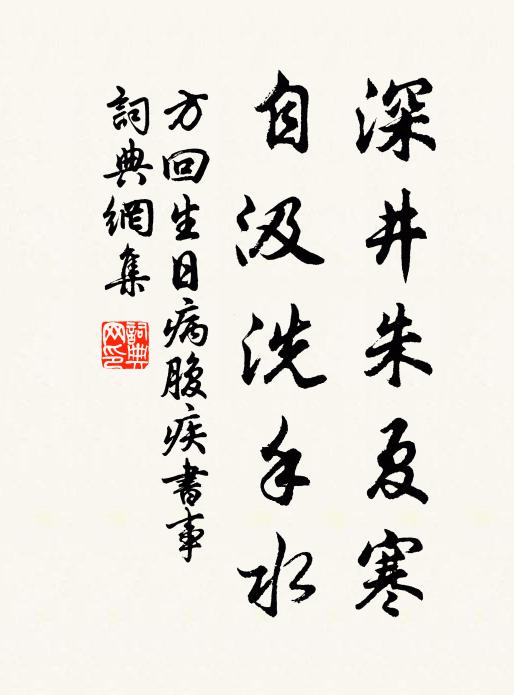 深井朱夏寒
自汲洗手水
方回生日病腹疾書事
詞典網集
詞典網印